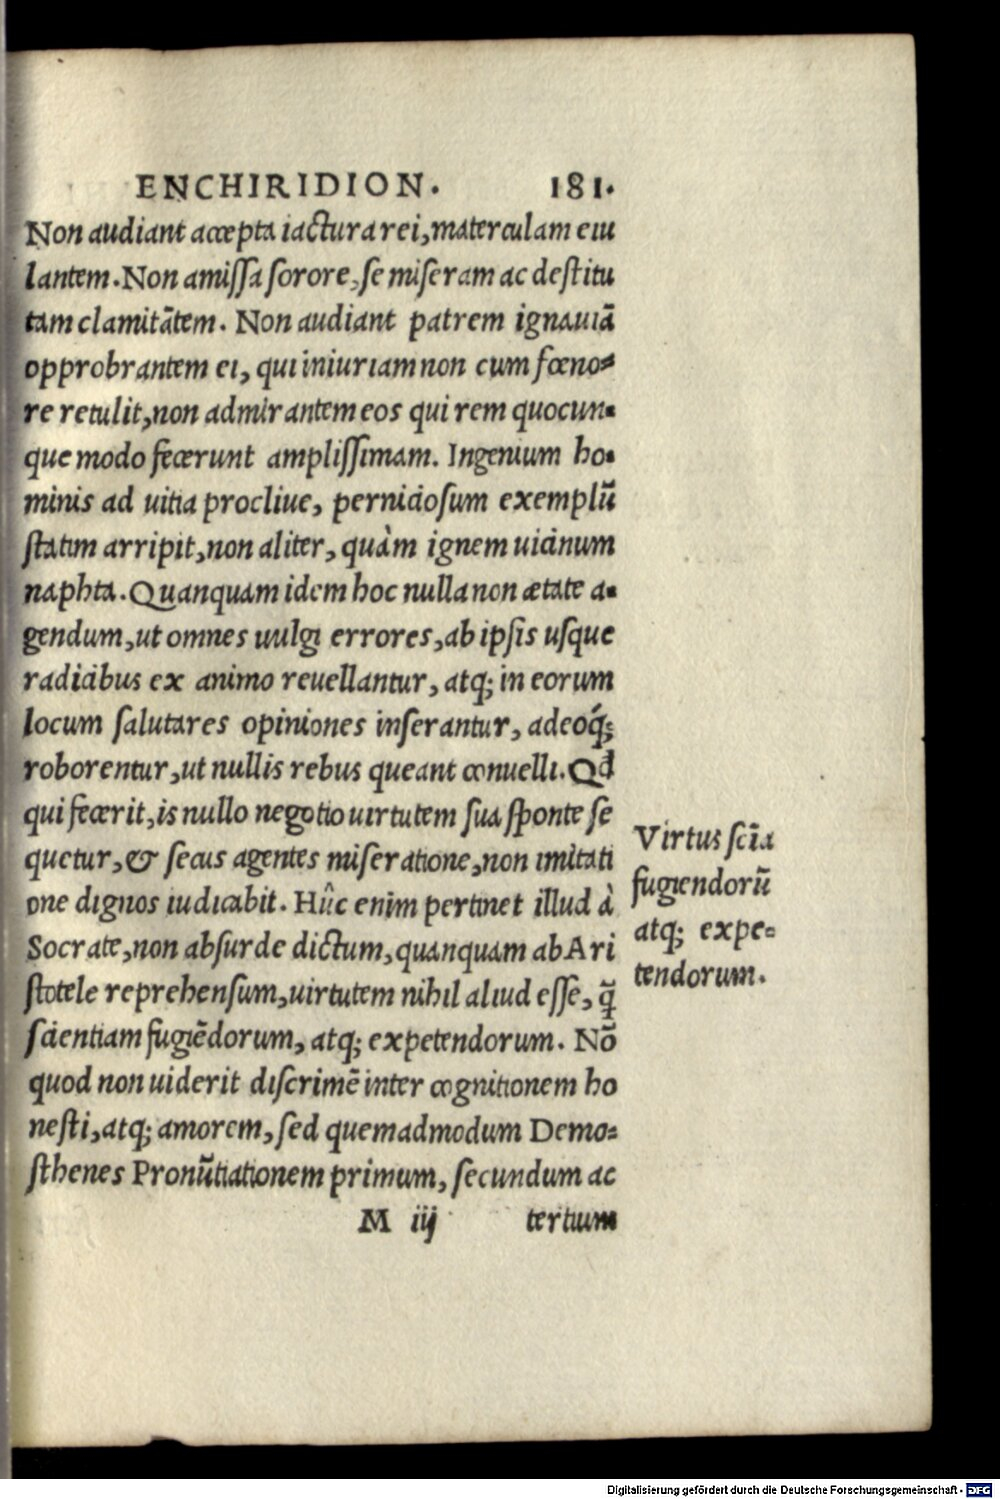 ENCHIRIDION. 181.
Non audiant accepta iactura rei, materculam eiu
lantem. Non amissa sorore, se miseram ac destitu
tam clamitãtem. Non audiant patrem ignauiã
opprobrantem ei, qui iniuriam non cum fœno-
re retulit, non admirantem eos qui rem quocun-
que modo fecerunt amplissimam. Ingenium ho-
minis ad uitia procliue, perniciosum exemplũ
statim arripit, non aliter, quàm ignem uicinum
naphta. Quanquam idem hoc nulla non ætate a-
gendum, ut omnes uulgi errores, ab ipsis usque
radicibus ex animo reuellantur, atq; in eorum
locum salutares opiniones inserantur, adeoq́;
roborentur, ut nullis rebus queant conuelli. Qd̃
qui fecerit, is nullo negotio uirtutem sua sponte se
quetur, & secus agentes miseratione, non imitati
one dignos iudicabit. Hûc enim pertinet illud à
Socrate, non absurde dictum, quanquam ab Ari
stotele reprehensum, uirtutem nihil aliud esse, q̃
scientiam fugiẽdorum, atq; expetendorum. Nõ
quod non uiderit discrimẽ inter cognitionem ho
nesti, atq; amorem, sed quemadmodum Demo-
sthenes Pronũtiationem primum, secundum ac
M iij tertium
Virtus sciã
fugiendorũ
atq; expe-
tendorum.
Digitalisierung gefördert durch die Deutsche Forschungsgemeinschaft - DFG